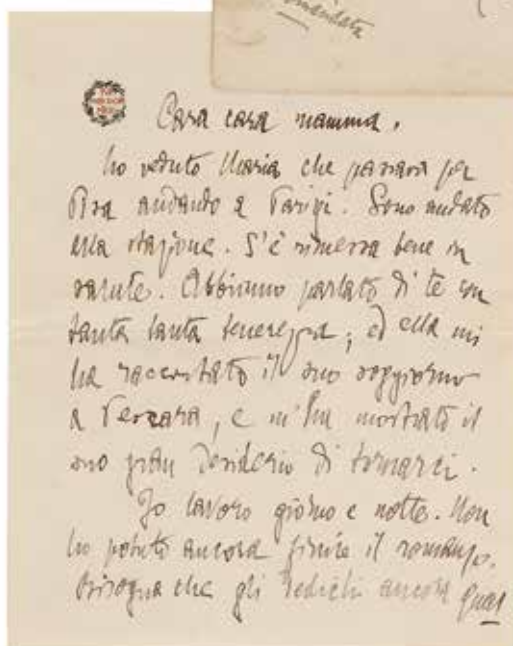 Cara cara mamma,
ho veduto Maria che passava per
Pisa andando a Parigi. Sono andato
alla stazione. S'è rimessa bene in
salute. Abbiamo parlato di te con
tanta tanta tenerezza; ed ella mi
ha raccontato il suo soggiorno
a Pescara, e m'ha mostrato il
suo gran desiderio di tornarci.
Io lavoro giorno e notte. Non
ho potuto ancora finire il romanzo.
Bisogna che gli dedichi ancora